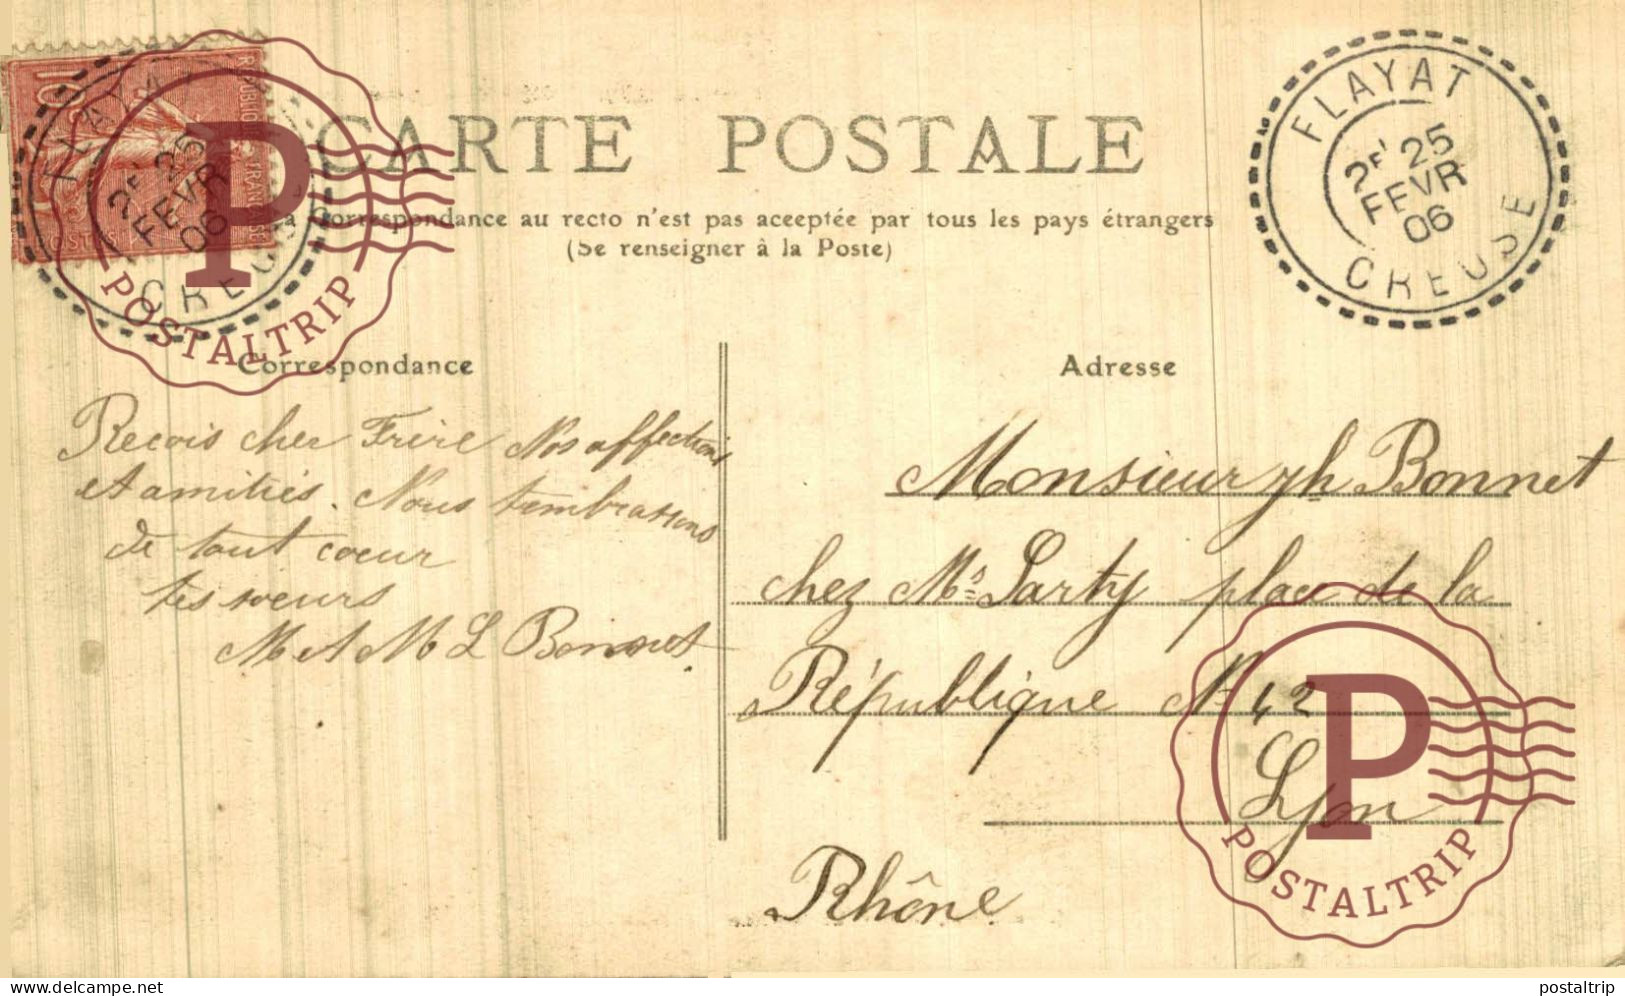 CARTE POSTALE
La Correspondance au recto n'est pas acceptée par tous les pays étrangers
(Se renseigner à la Poste)
FLAYAT
25
FEVR
06
CREUSE
10c
POSTES
REPUBLIQUE FRANÇAISE
25
FEVR
06
CREUSE
P
POSTALTRIP
Correspondance
Recois cher Frère Nos affections
et amitiés. Nous t'embrassons
de tout coeur
tes soeurs
M et M L Bonnet.
Adresse
Monsieur Bonnet
chez Mr Larty place de la
République No 42
Lyon
Rhône
P
POSTALTRIP
delcampe.net
postaltrip